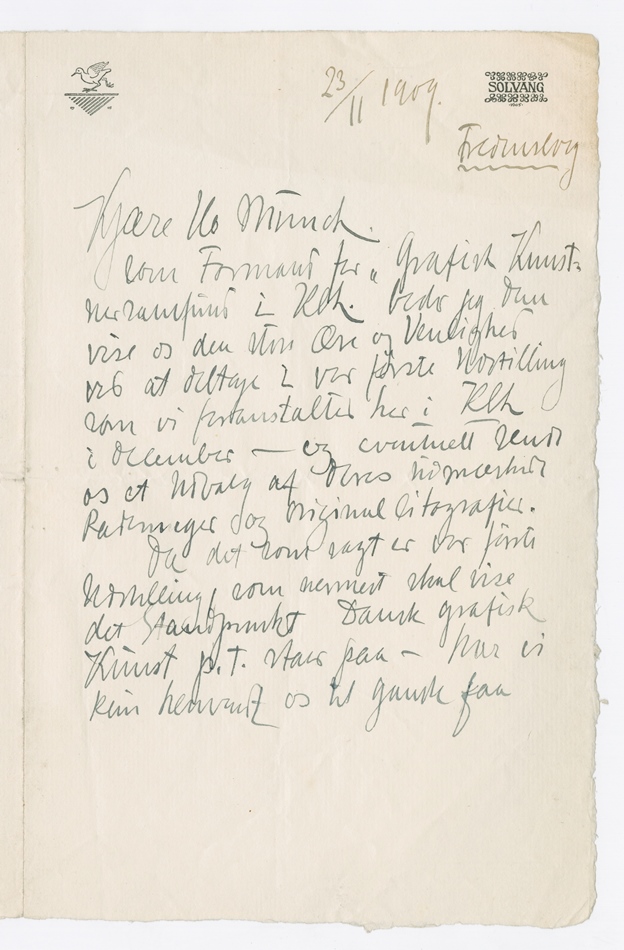 SOLVANG
23/11 1909.
Fredensborg
Kjære Hr Münch.
som Formand for „Grafisk Kunst-
nersamfund i Kbh. beder jeg Dem
vise os den store Ære og Venlighed
ved at deltage i vor første Udstilling
som vi foranstalter her i Kbh
i December — og eventuelt sende
os et Udvalg af Deres udmærkede
Raderinger og original litografier.
Da det som sagt er vor første
Udstilling, som nærmest skal vise
det Standpunkt Dansk grafisk
Kunst p.t. staar paa – har vi
kun henvendt os til ganske faa